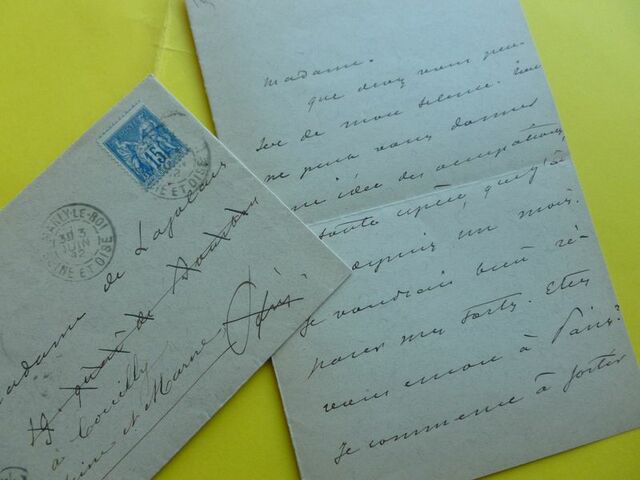 MARLY-LE-ROI
3E
3
JUIN
92
SEINE ET OISE
15
SEINE ET OISE
Madame de Lagalais
quai de Bourbon
à Couilly
Seine et Marne
Paris
Madame.
que devez vous pen
ser de mon silence.
ne puis vous donner
une idée des occupations,
toute espèce, que j'ai
depuis un mois.
Je voudrais bien ré
parer mes torts. Etes
vous encore à Paris?
Je commence à sortir